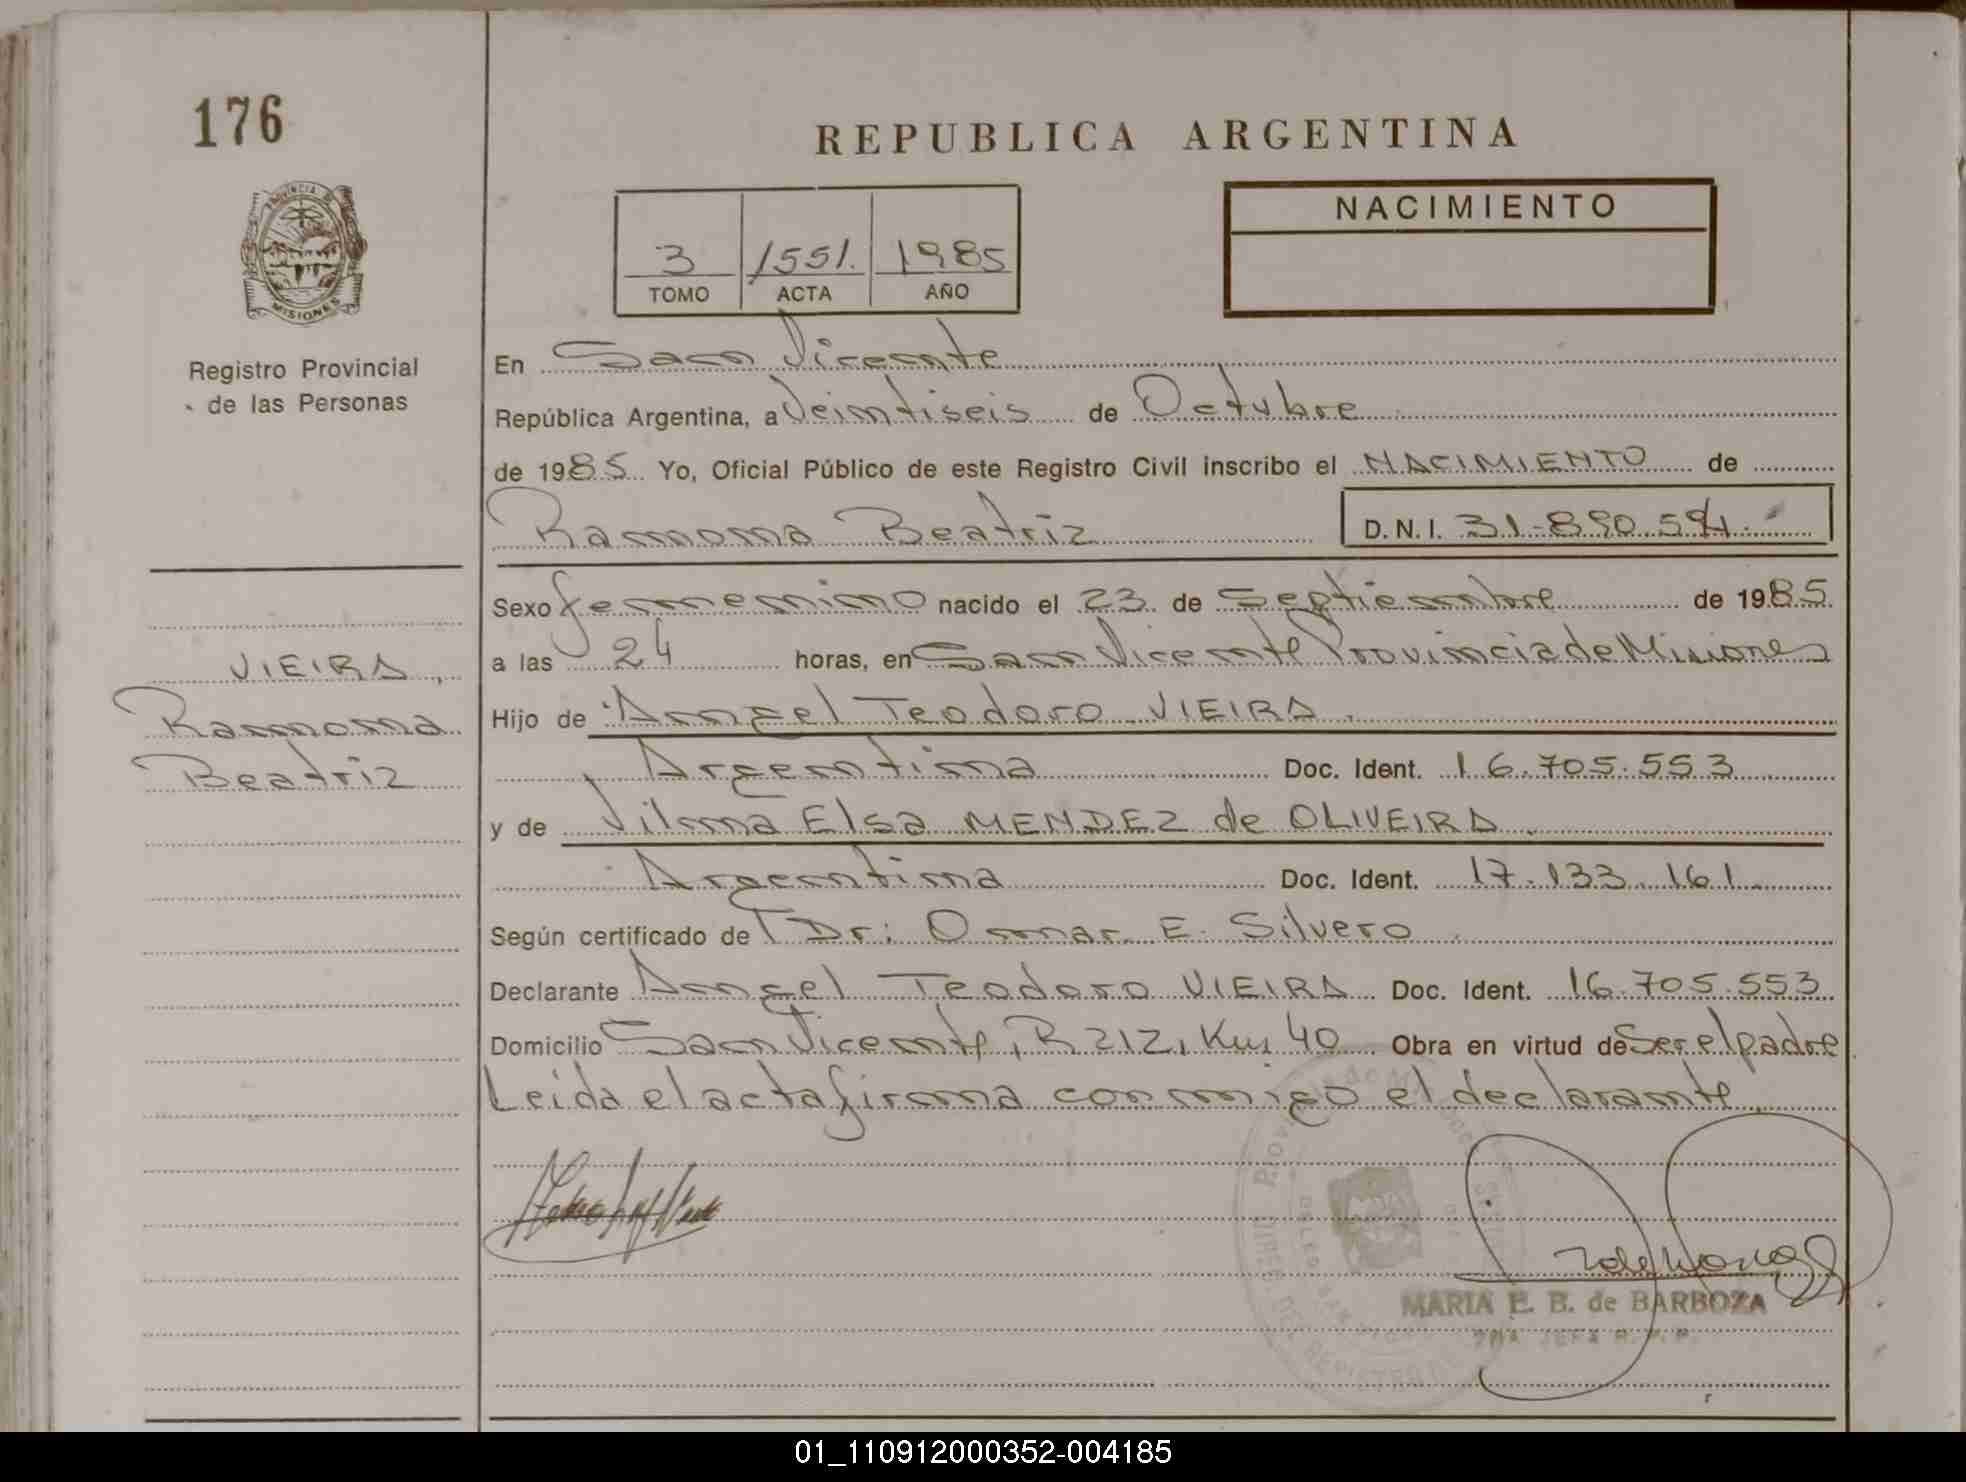 176
REPUBLICA ARGENTINA
PROVINCIA DE
MISIONES
Registro Provincial
de las Personas
3 1551. 1985
TOMO ACTA AÑO
NACIMIENTO
En San Vicente
República Argentina, a Veintiseis de Octubre
de 1985 Yo, Oficial Público de este Registro Civil inscribo el NACIMIENTO de
Ramona Beatriz D.N.I. 31.890.594.
Sexo femenino nacido el 23 de Septiembre de 1985
a las 24 horas, en San Vicente Provincia de Misiones
VIEIRA,
Ramona
Beatriz
Hijo de Angel Teodoro VIEIRA
Argentina Doc. Ident. 16.705.553
y de Vilma Elsa MENDEZ de OLIVEIRA
Argentina Doc. Ident. 17.133.161
Según certificado de Dr: Omar E. Silvero
Declarante Angel Teodoro VIEIRA Doc. Ident. 16.705.553
Domicilio San Vicente, R 212, Km 40 Obra en virtud de Ser el padre
Leida el acta firma conmigo el declarante
MARIA E. B. de BARBOZA
JEFA R. P. P.
01_110912000352-004185